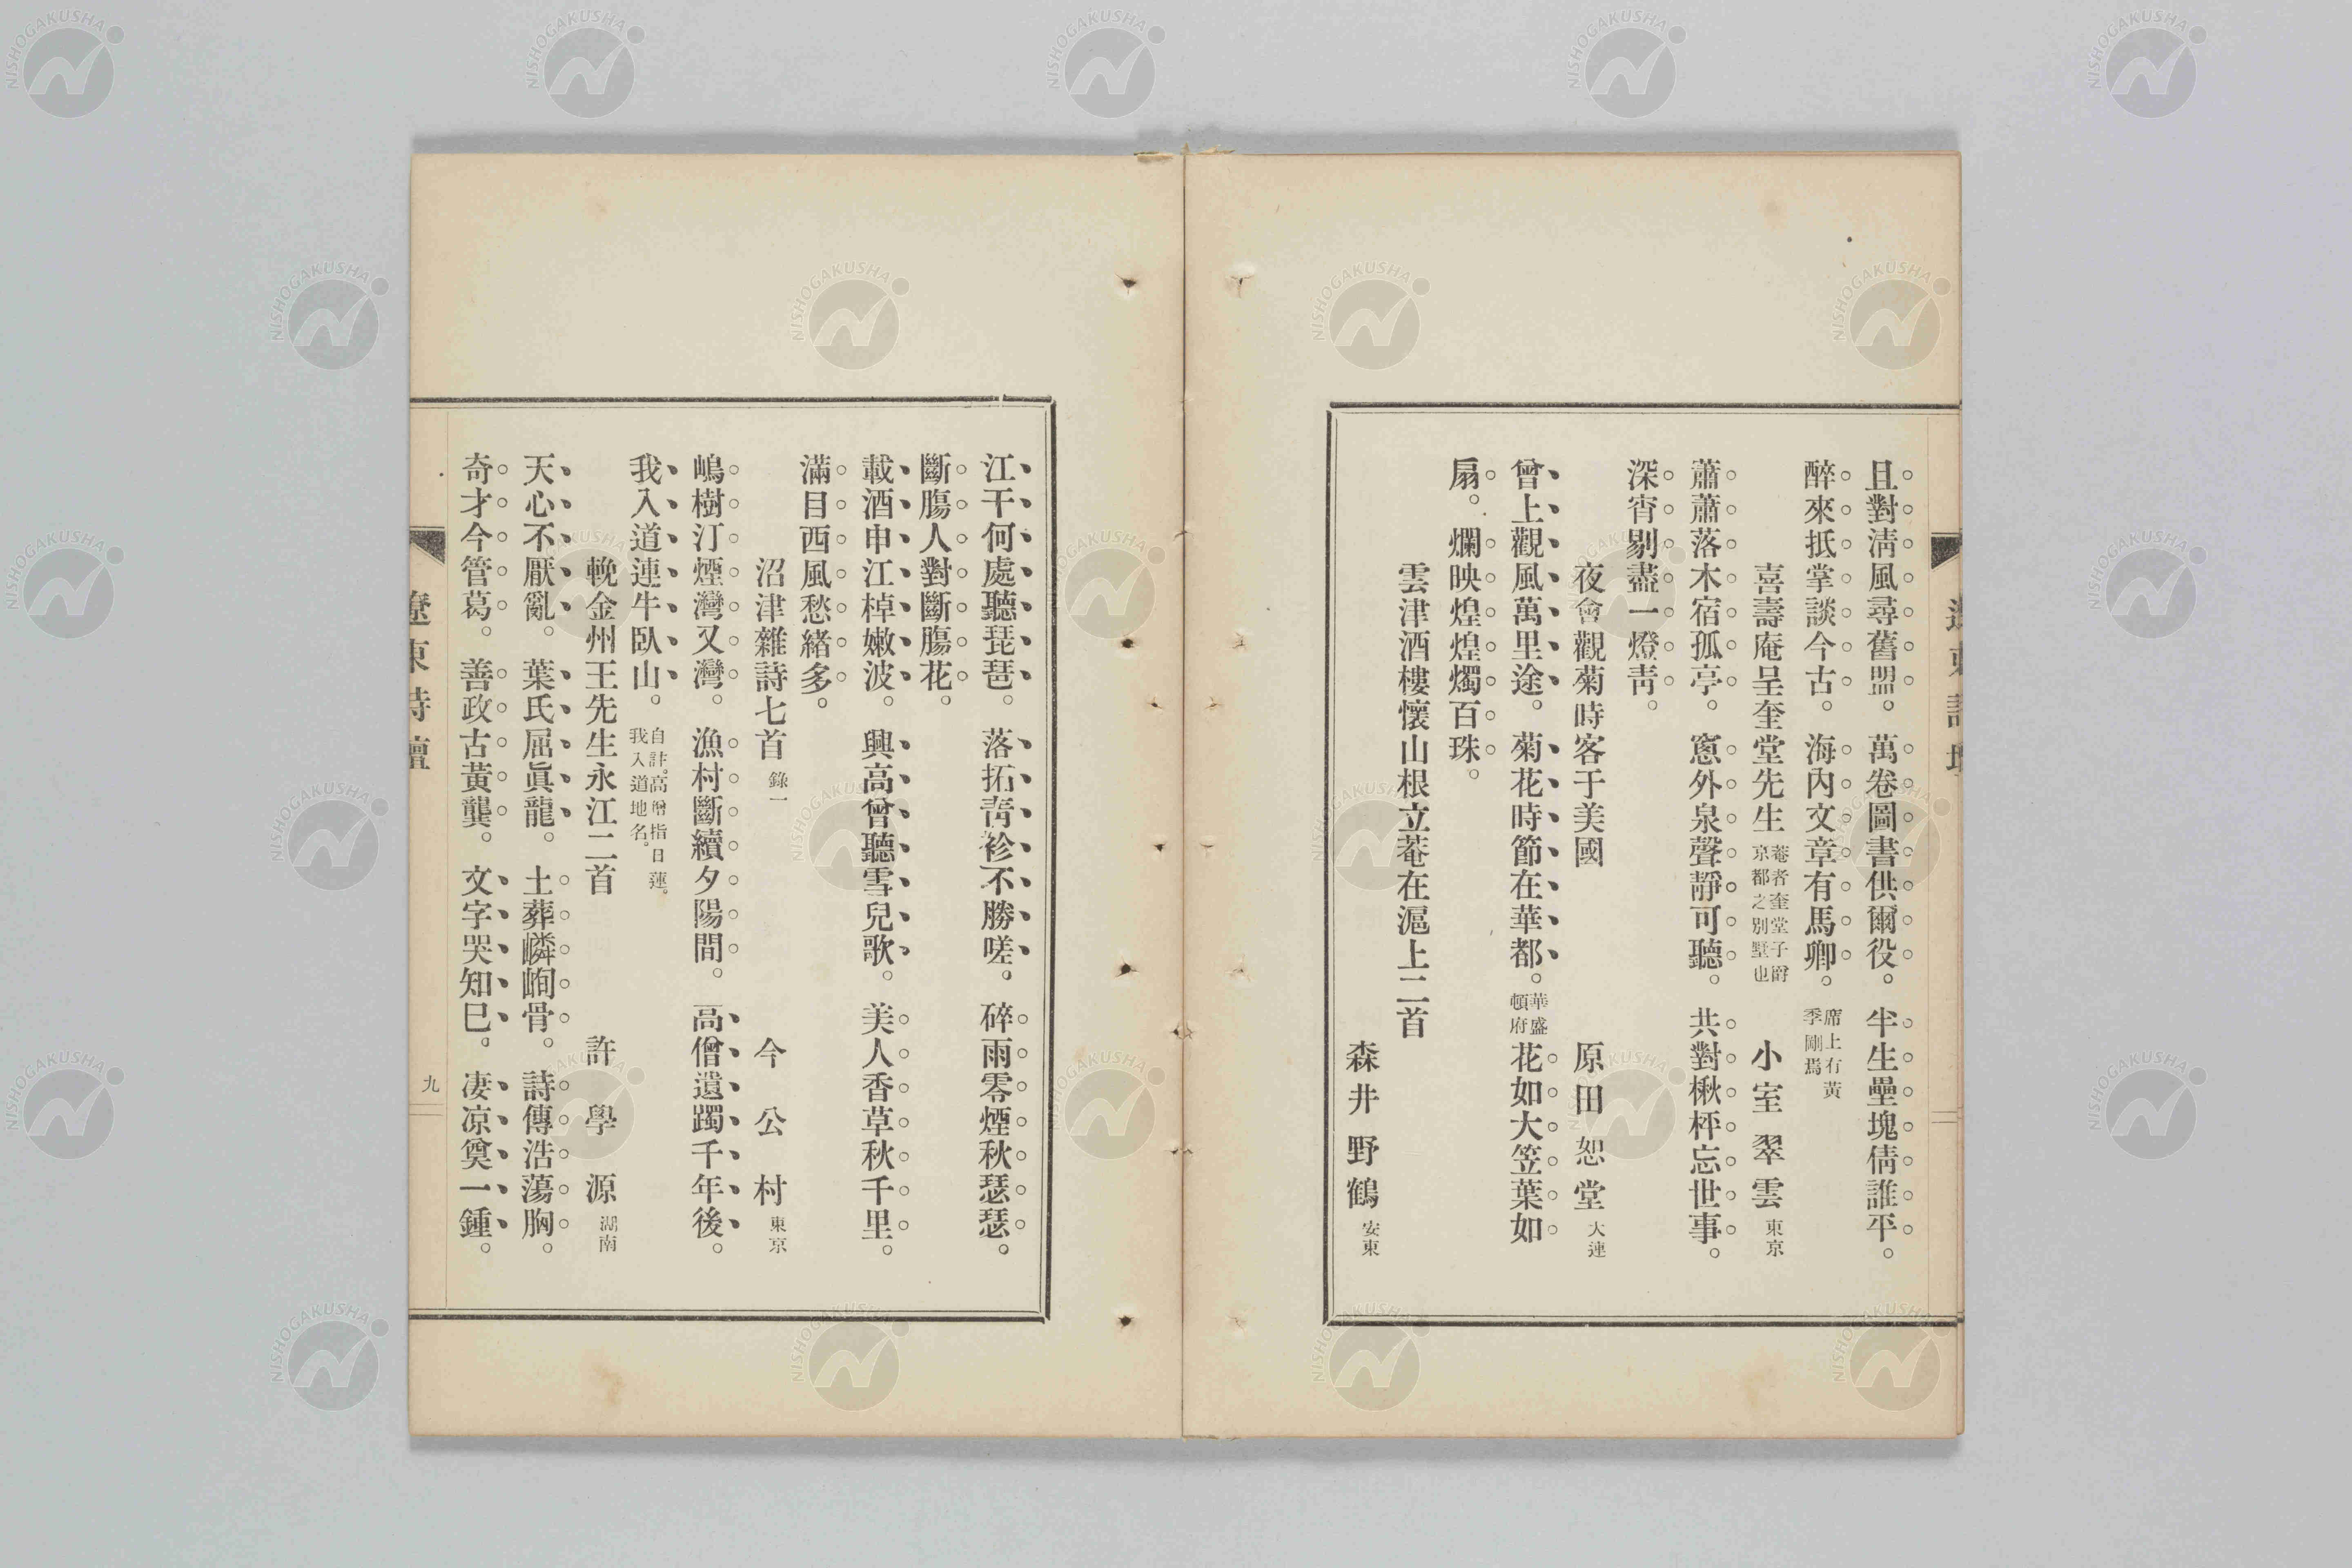 且對淸風尋舊盟。萬卷圖書供爾役。半生壘塊倩誰平。
醉來抵掌談今古。海內文章有馬卿。席上有黃季剛焉
喜壽庵呈奎堂先生 菴者奎堂子爵京都之別墅也 小室翠雲 東京
蕭蕭落木宿孤亭。窻外泉聲靜可聽。共對楸枰忘世事。
深宵剔盡一燈靑。
夜會觀菊時客于美國 原田恕堂 大連
曾上觀風萬里途。菊花時節在華都。華盛頓府 花如大笠葉如
扇。爛映煌煌燭百珠。
雲津酒樓懷山根立菴在滬上二首
森井野鶴 安東
江干何處聽琵琶。落拓靑衫不勝嗟。碎雨零煙秋瑟瑟。
斷膓人對斷膓花。
載酒申江棹嫩波。興高曾聽雪兒歌。美人香草秋千里。
滿目西風愁緒多。
沼津雜詩七首 錄一 今公村 東京
嶋樹汀煙灣又灣。漁村斷續夕陽間。高僧遺躅千年後。
我入道連牛臥山。自註。高僧指日蓮。我入道地名。
輓金州王先生永江二首 許學源 湖南
天心不厭亂。葉氏屈眞龍。土葬嶙峋骨。詩傳浩蕩胸。
奇才今管葛。善政古黃龔。文字哭知巳。凄凉奠一鍾。
遼東詩壇
九